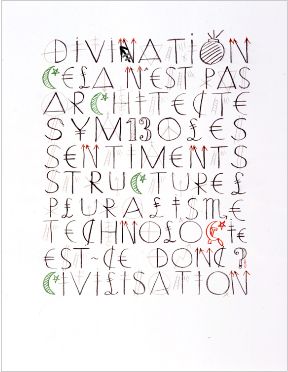 DIVINATION
CELA N'EST PAS
ARCHITECTE
SYMBOLES
SENTIMENTS
STRUCTUREL
PLURALISME
TECHNOLOGIE
EST-CE DONC ?
CIVILISATION